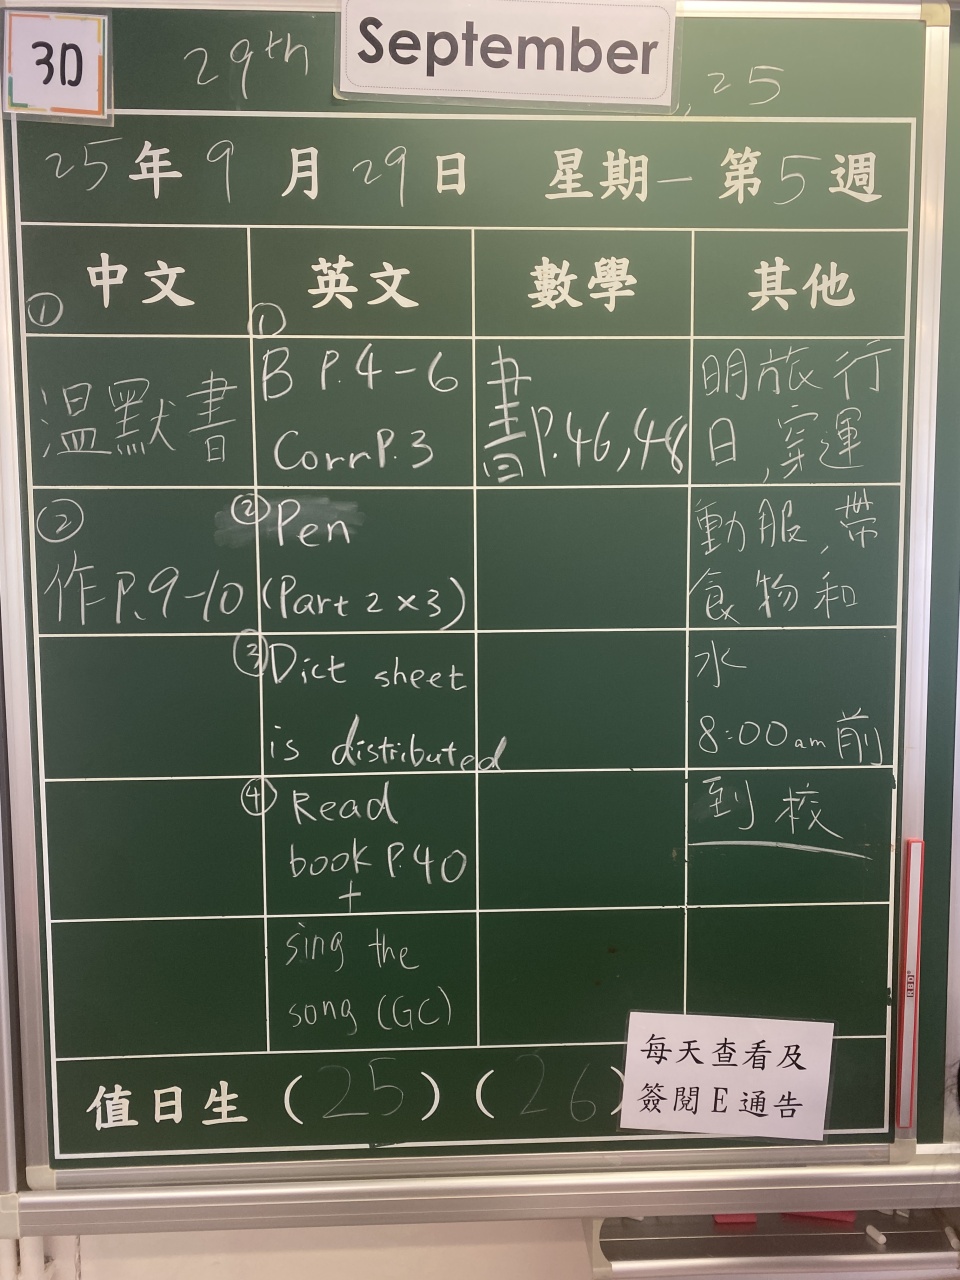 3D
29th September, 25
25年9月29日 星期一 第5週
中文 英文 數學 其他
①
溫默書
②
作P.9-10
①
B P.4-6
Corr P.3
② Pen
(Part 2 x 3)
③ Dict sheet
is distributed
④ Read
book P.40
+
sing the
song (GC)
書P.46,48
明旅行
日,穿運
動服,帶
食物和
水
8:00am前
到校
值日生 (25) (26)
每天查看及
簽閱E通告
RBD